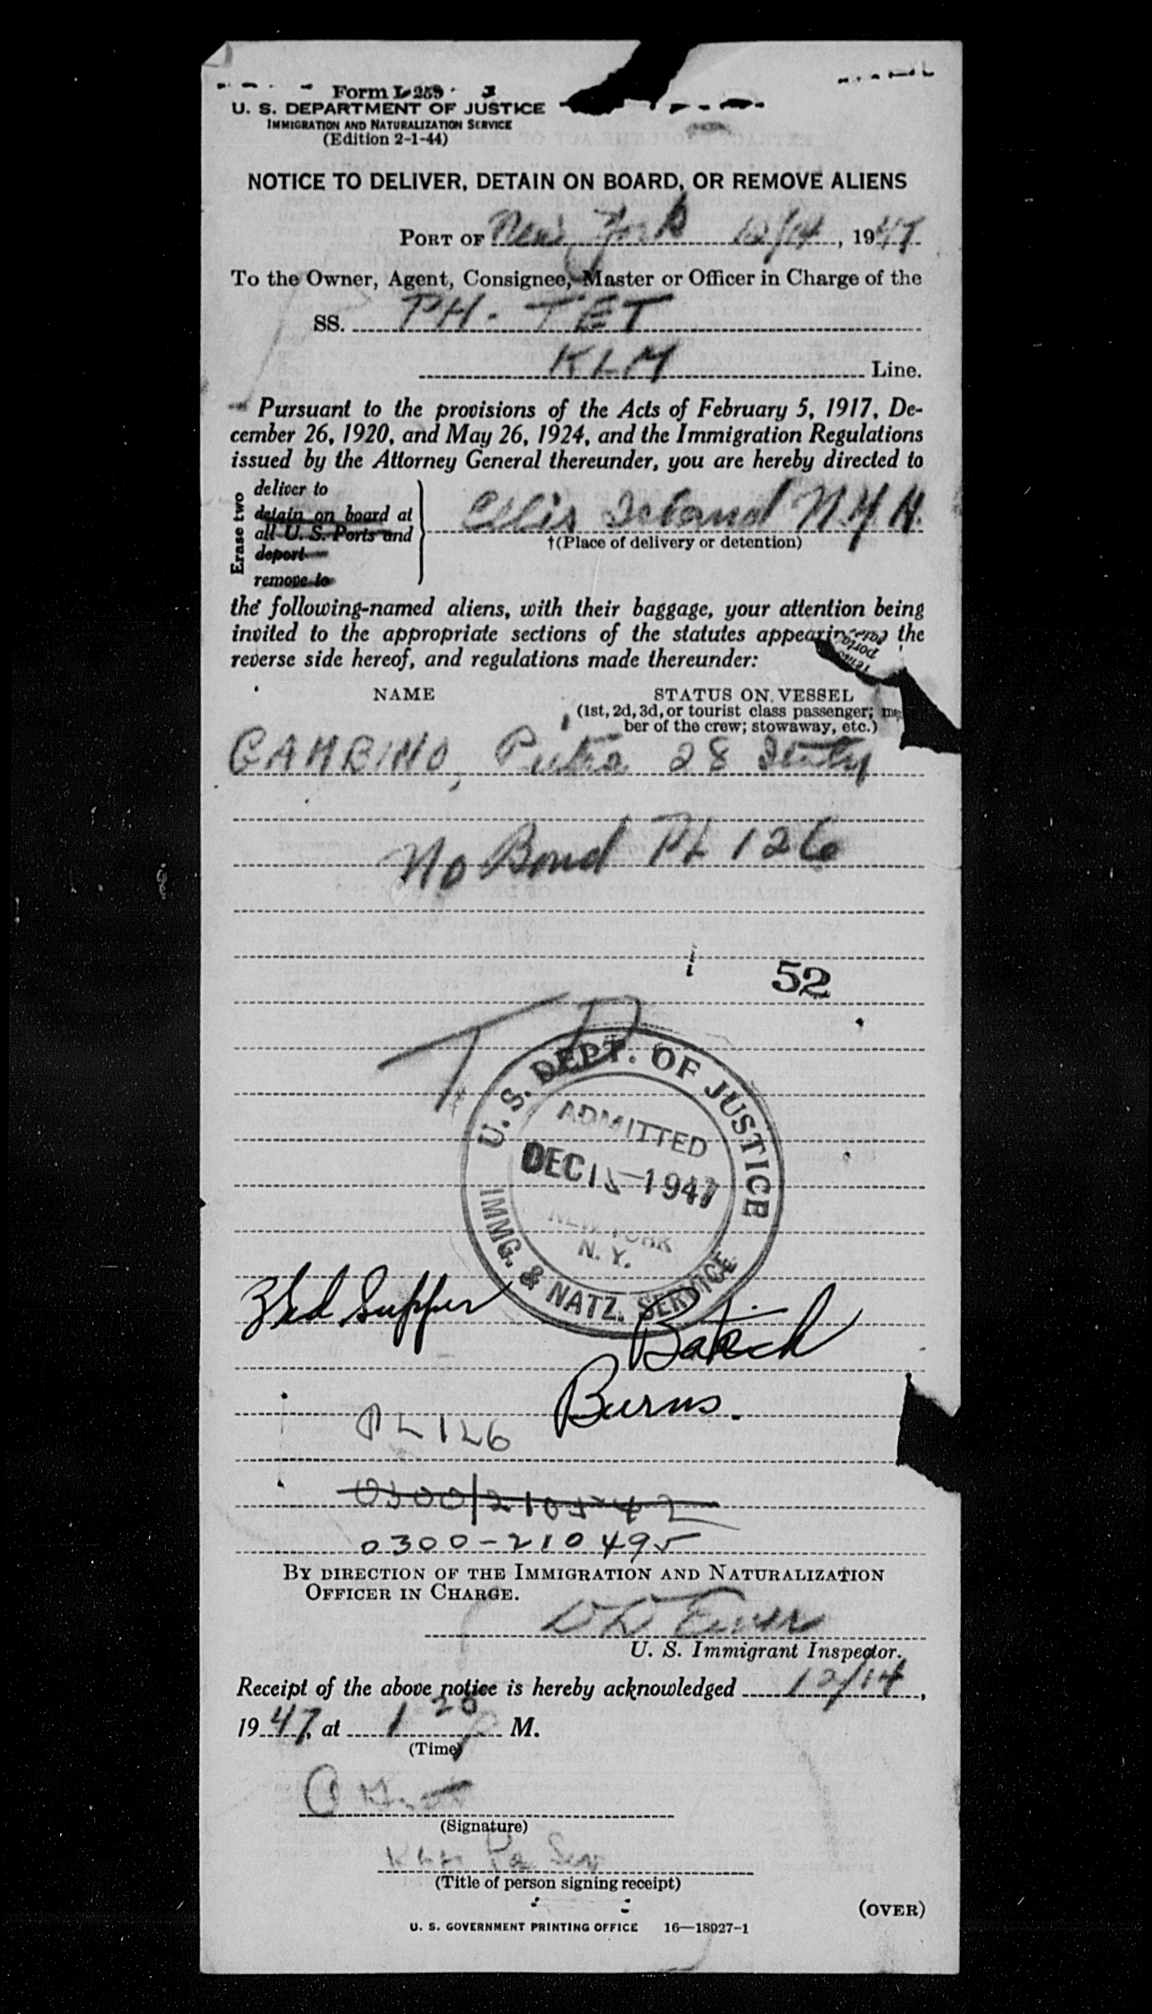 Form I-259
U. S. DEPARTMENT OF JUSTICE
IMMIGRATION AND NATURALIZATION SERVICE
(Edition 2-1-44)
NOTICE TO DELIVER, DETAIN ON BOARD, OR REMOVE ALIENS
PORT OF New York 12/14, 1947
To the Owner, Agent, Consignee, Master or Officer in Charge of the
SS. PH-TET
KLM Line.
Pursuant to the provisions of the Acts of February 5, 1917, De-
cember 26, 1920, and May 26, 1924, and the Immigration Regulations
issued by the Attorney General thereunder, you are hereby directed to
Erase two
deliver to
detain on board at
all U. S. Ports and
deport
remove to
Ellis Island N Y H
†(Place of delivery or detention)
the following-named aliens, with their baggage, your attention being
invited to the appropriate sections of the statutes appearing the
reverse side hereof, and regulations made thereunder:
NAME STATUS ON VESSEL
(1st, 2d, 3d, or tourist class passenger;
ber of the crew; stowaway, etc.)
GAMBINO, 28
No Bond PL 126
52
T D
U. S. DEPT. OF JUSTICE
ADMITTED
DEC 1 1947
NEW YORK
N. Y.
IMMG. & NATZ. SERVICE
Supper
Burns.
PL 126
0300/210542
0300-210495
BY DIRECTION OF THE IMMIGRATION AND NATURALIZATION
OFFICER IN CHARGE.
U. S. Immigrant Inspector.
Receipt of the above notice is hereby acknowledged 12/14,
1947, at 1 20 P M.
(Time)
(Signature)
(Title of person signing receipt)
(OVER)
U. S. GOVERNMENT PRINTING OFFICE 16—18027-1